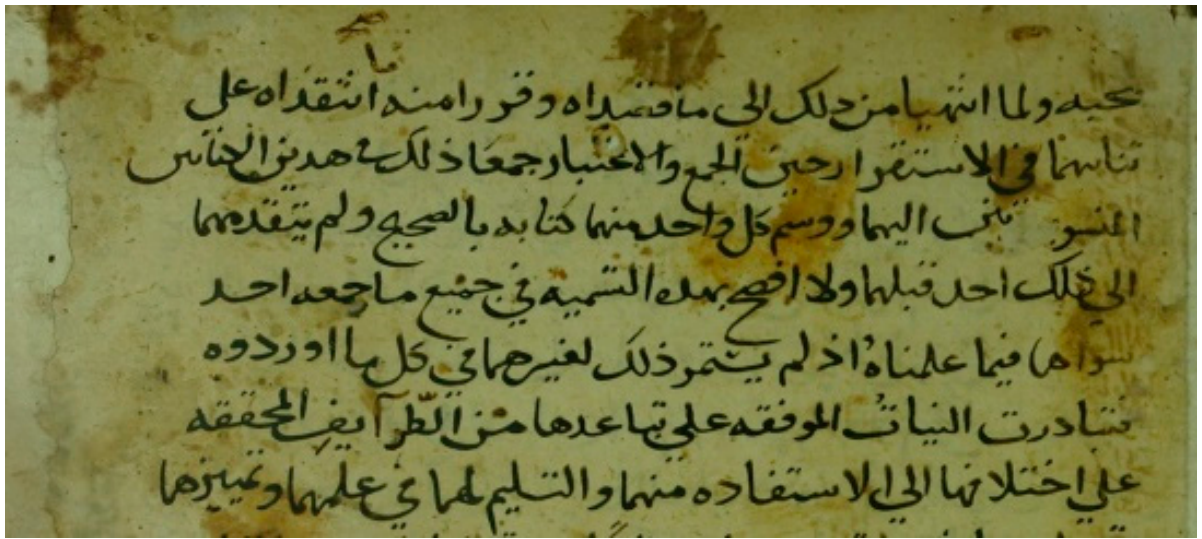 محبه ولما انتهيا من ذلك الى ما قصداه وقررا منه انتقداه على
تنائيهما في الاستقرار حين الجمع والاعتبار جمعا ذلك في هذين الكتابين
المنسوبين اليهما ووسم كل واحد منهما كتابه بالصحيح ولم يتقدمهما
الى ذلك احد قبلهما ولا افصح بهذه التسميه في جميع ما جمعه احد
سواهما فيما علمناه اذ لم يستمر ذلك لغيرهما في كل ما اوردوه
فتبادرت النيات الموفقه على تباعدها من الطرآيف المحققه
على اختلافها الى الاستفاده منهما والتسليم لهما في علمهما وتمييزهما